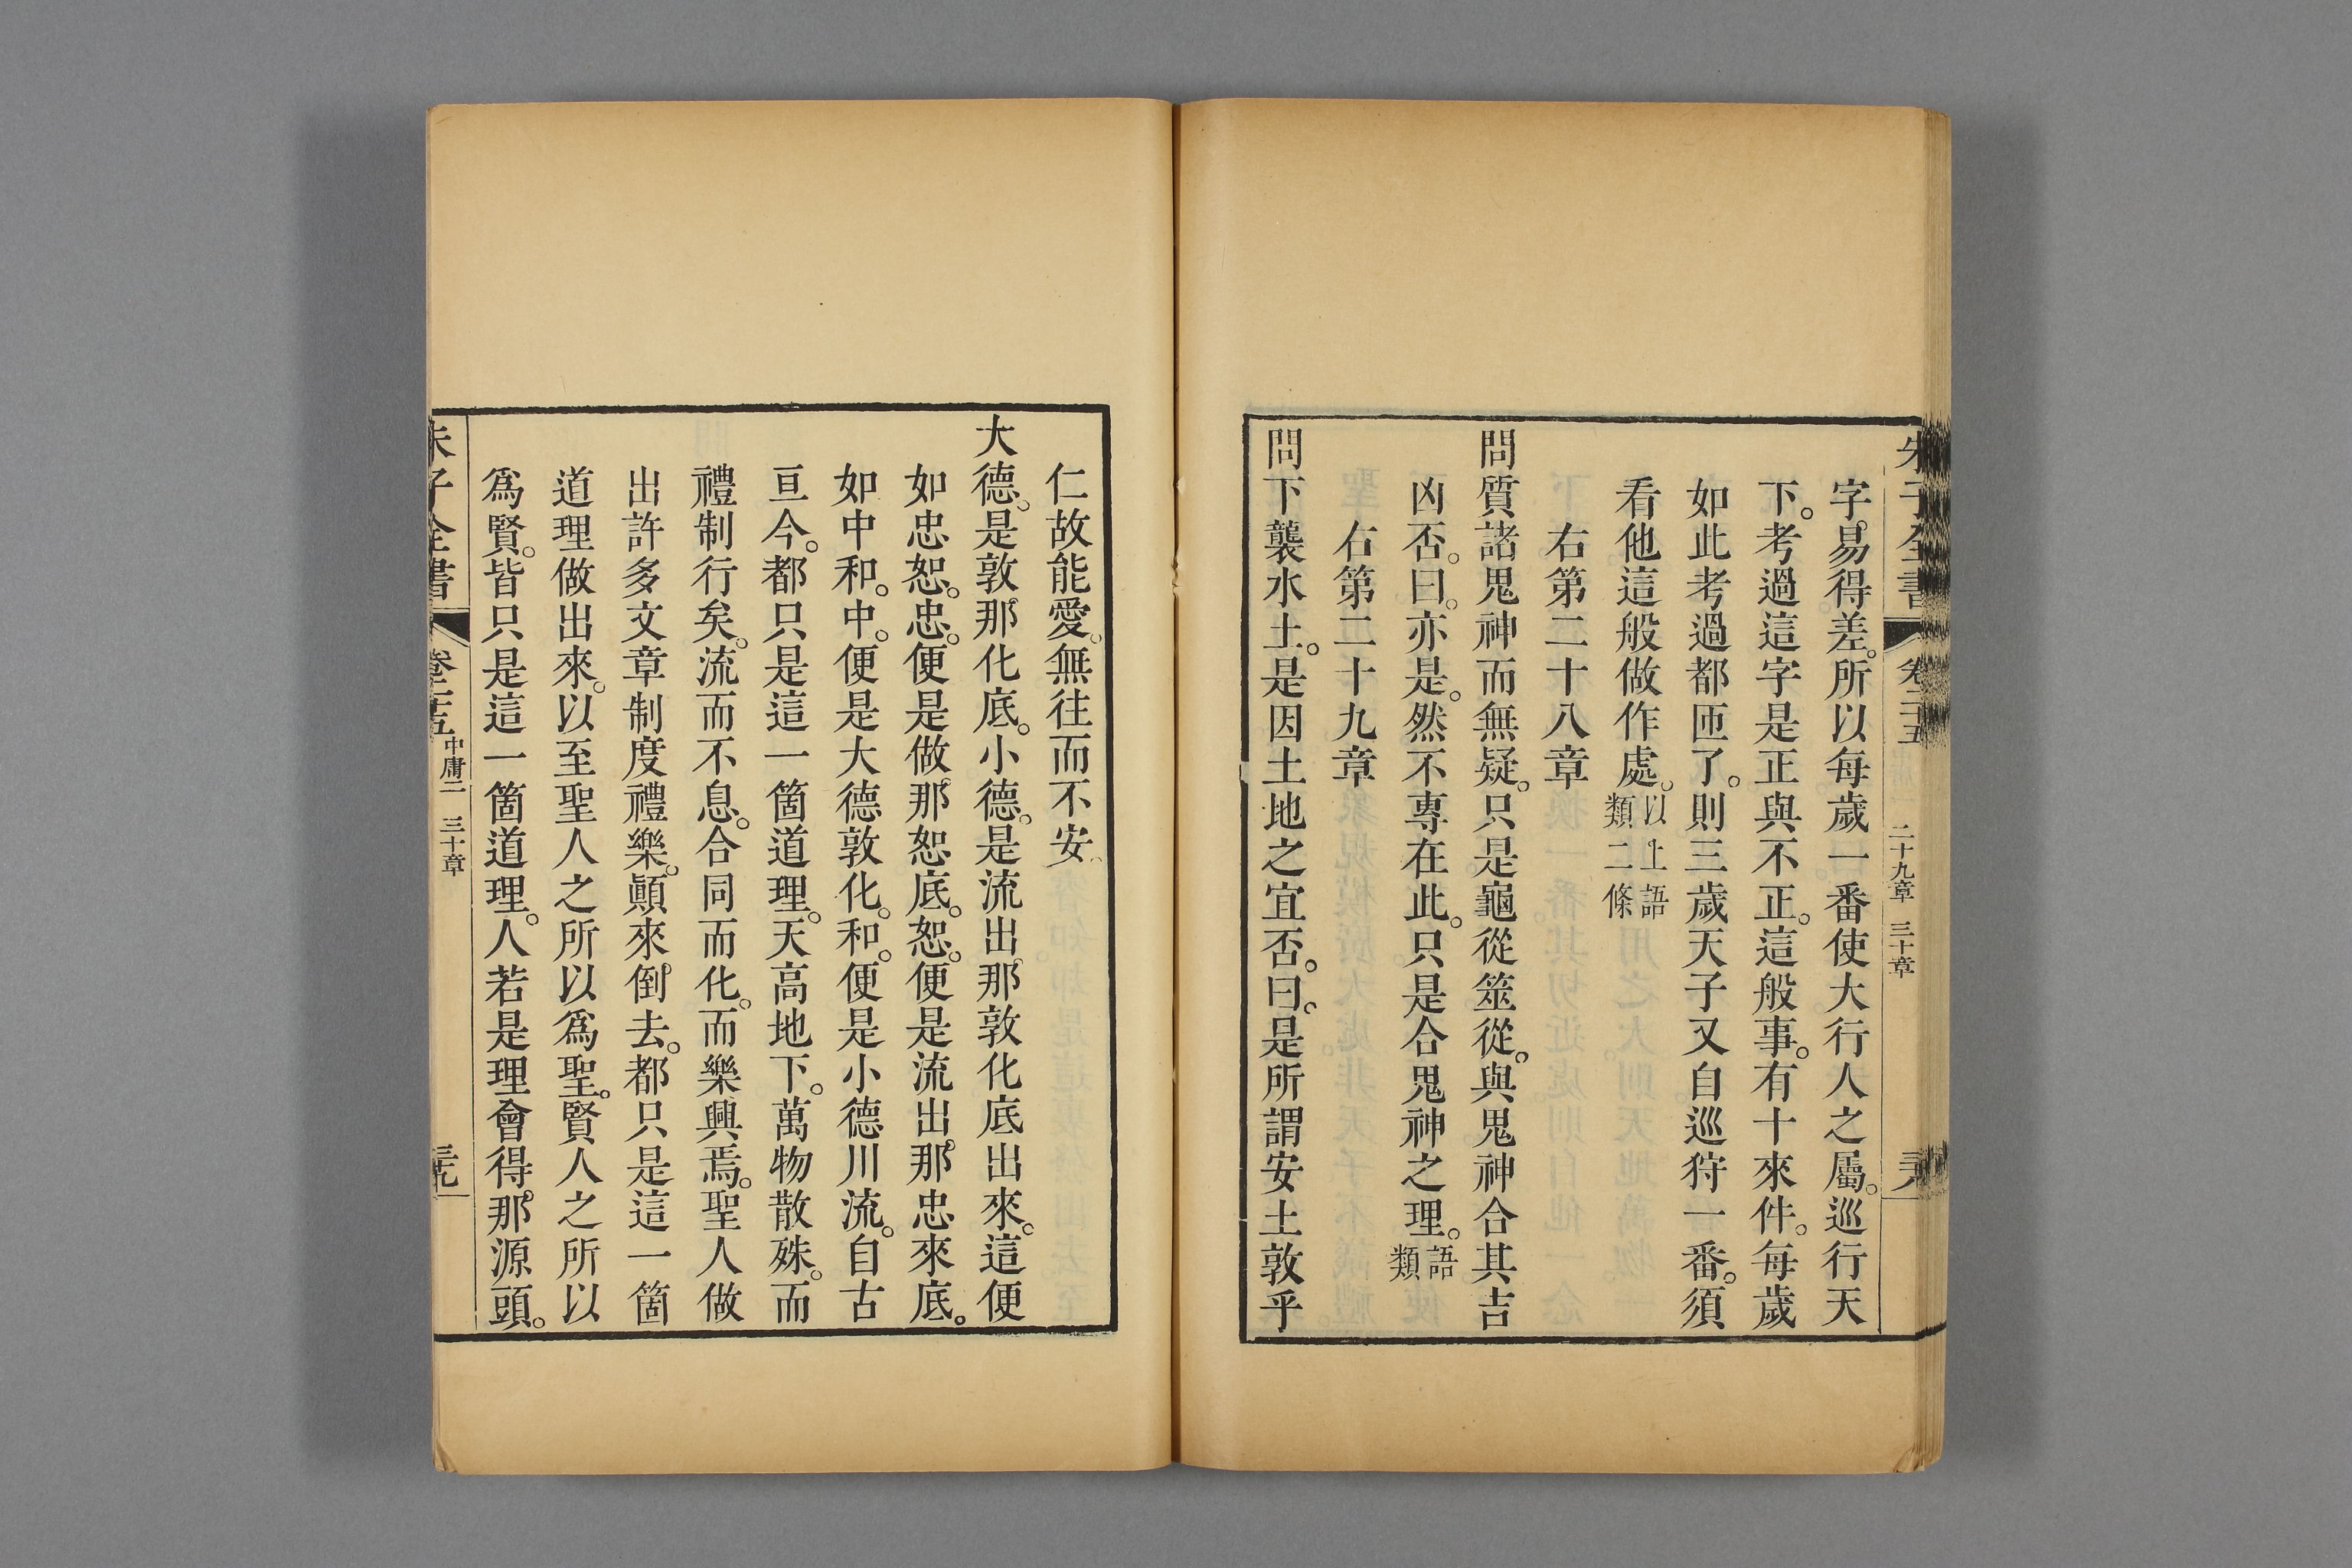 朱子全書 卷二十五 二十九章 三十章
字易得差。所以每歲一番使大行人之屬。巡行天
下。考過這字是正與不正。這般事。有十來件。每歲
如此考過都匝了。則三歲天子又自巡狩一番。須
看他這般做作處。以上語類二條
右第二十八章
問質諸鬼神而無疑。只是龜從筮從。與鬼神合其吉
凶否。曰。亦是。然不專在此。只是合鬼神之理。語類
右第二十九章
問下襲水土。是因土地之宜否。曰。是所謂安土敦乎
仁故能愛。無往而不安。
大德。是敦那化底。小德。是流出那敦化底出來。這便
如忠恕。忠。便是做那恕底。恕。便是流出那忠來底。
如中和。中。便是大德敦化。和。便是小德川流。自古
亘今。都只是這一箇道理。天高地下。萬物散殊。而
禮制行矣。流而不息。合同而化。而樂興焉。聖人做
出許多文章制度禮樂。顚來倒去。都只是這一箇
道理做出來。以至聖人之所以爲聖。賢人之所以
爲賢。皆只是這一箇道理。人若是理會得那源頭。
朱子全書 卷二十五 中庸二 三十章 三十九